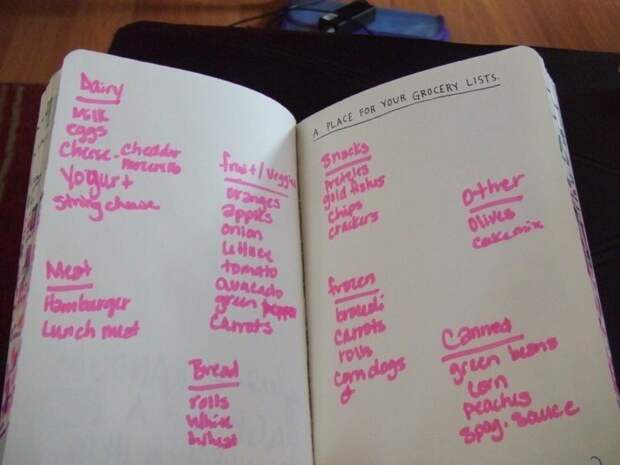 Dairy
Milk
eggs
Cheese - Cheddar
Yogurt
String cheese
Meat
Hamburger
Lunch meat
fruit/veggies
oranges
apples
onion
lettuce
tomato
avacado
green pepper
Carrots
Bread
rolls
White
Wheat
A PLACE FOR YOUR GROCERY LISTS.
Snacks
pretzles
gold fishes
chips
crackers
frozen
brocoli
Carrots
rolls
corndogs
other
olives
cake mix
Canned
green beans
Corn
peaches
spag. sauce